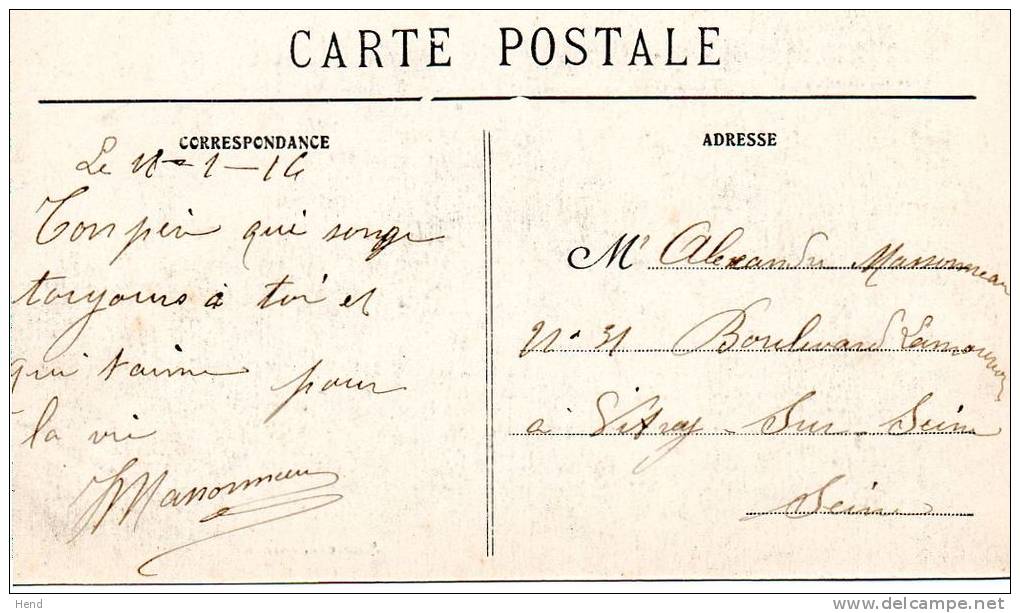 CARTE POSTALE
CORRESPONDANCE
Le 11-1-14
Ton père qui songe
toujours à toi et
qui t'aime pour
la vie
Massonneau
ADRESSE
Mr Alexandre Massonneau
No 31 Boulevard Lamouroux
à Vitry-Sur-Seine
Seine
Hend
delcampe.net